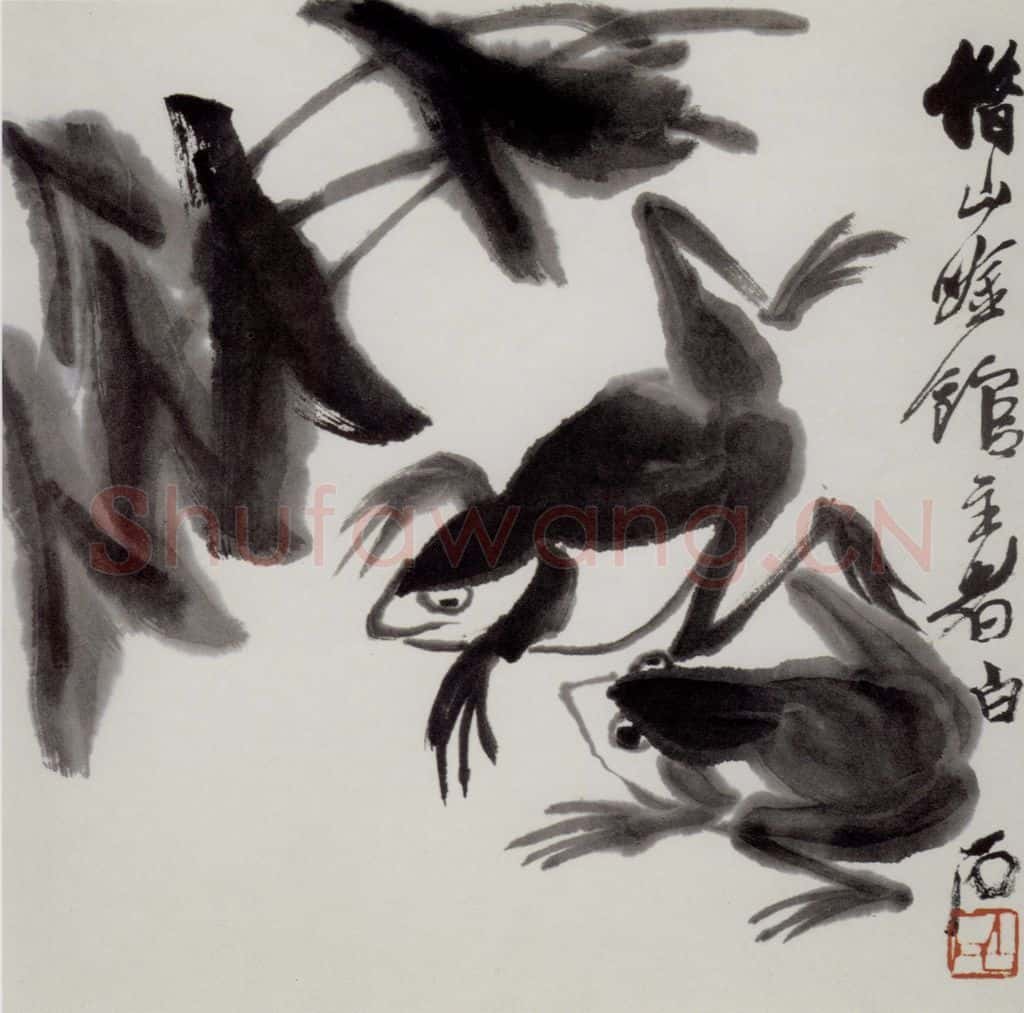 借山唫館主者白石
Shufawang.CN